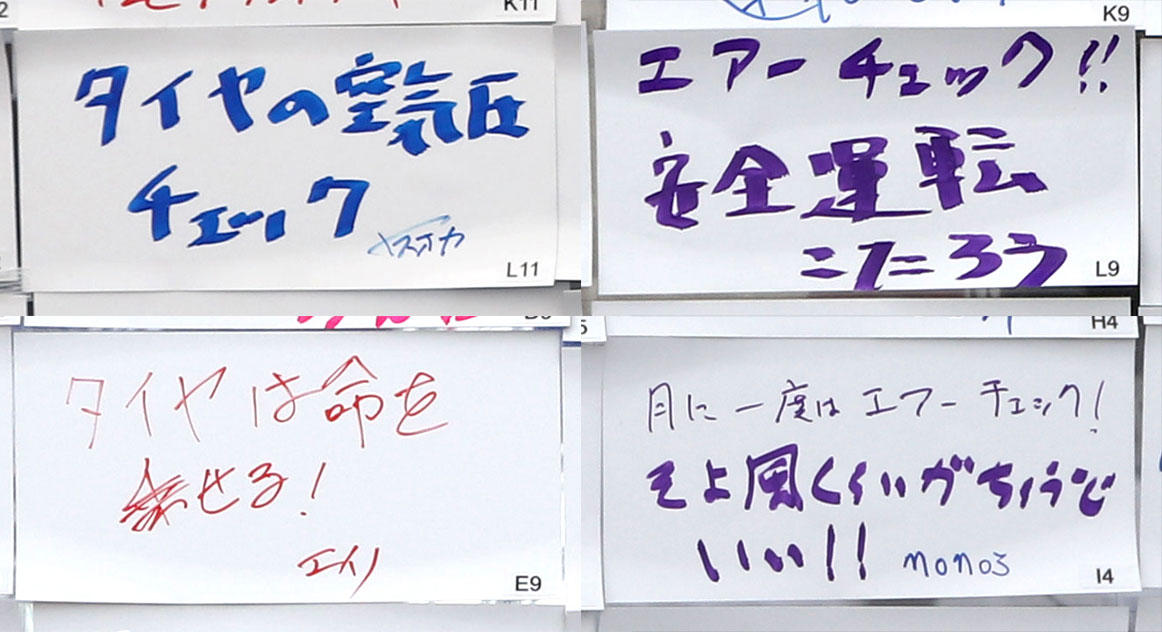 K11
タイヤの空気圧
チェック
ヤスオカ
L11
K9
エアーチェック!!
安全運転
こころう
L9
タイヤは命を
乗せる!
エイリ
E9
H4
月に一度はエアーチェック!
そよ風くらいがちょうど
いい!!
monoろ
I4